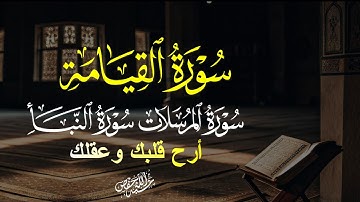 سُورَةُ ٱلْقِيَامَةِ
سُورَةُ ٱلْمُرْسَلَاتِ سُورَةُ ٱلنَّبَأِ
أرح قلبك و عقلك